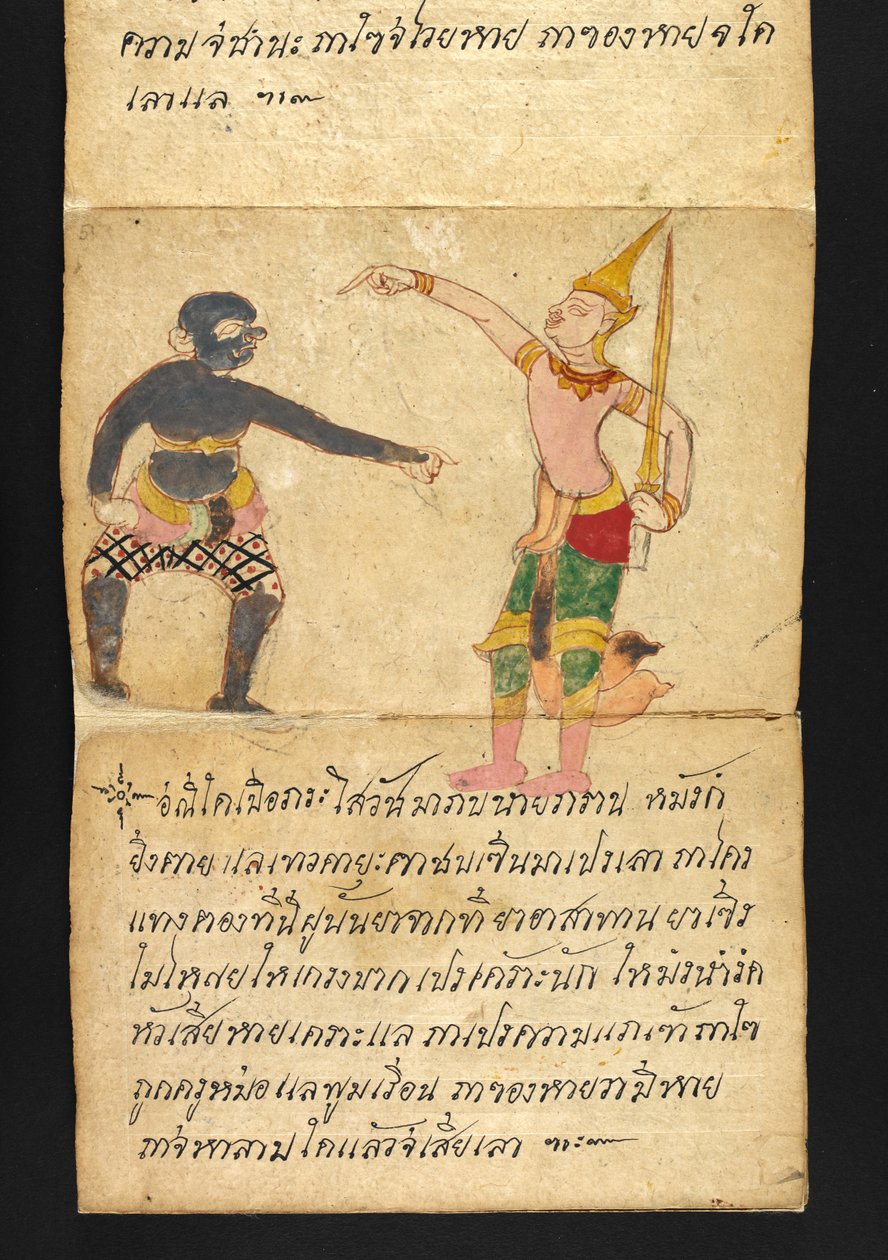 ความจ่ชำนะ ถาใซ่จ่ไวยหาย ถาฃองหายจใค
เลาแล
อ่ณี้ใคเปือภระไสวันมาภบนายภราน หมังกํ
ยิ่งตาย แลเทวคายุะตาชบเซินมาเปงเลา ถาไคร
แทงตองที่นี้ฝูนั้นยาจากที่ ยาอาสาทาน ยาเซิง
ไมไหสยใหเกรงบาก เปง นัก ใหมัง
หัวเสี้ยหายเคราะแล ถาเปงความแภเขา ถาใซ
ถูกครูหมํอ แลพูมเรื่อน ถาฃองหายวามีหาย
ถาจ่หาลาบใคแล้วจ่เสี้ยเลา